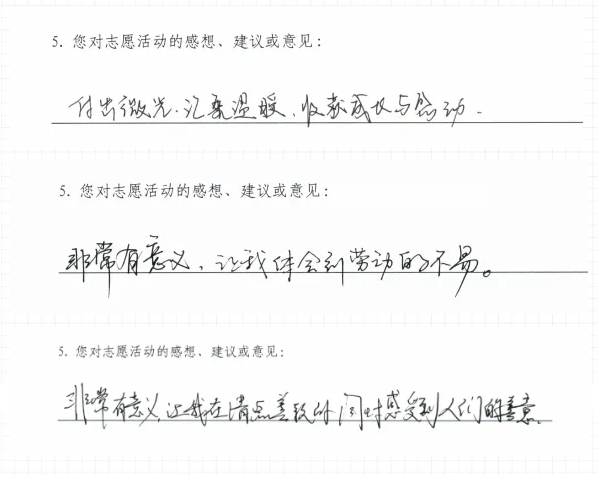 5. 您对志愿活动的感想、建议或意见：
付出微光，汇聚温暖，收获成长与感动。
5. 您对志愿活动的感想、建议或意见：
非常有意义，让我体会到劳动的不易。
5. 您对志愿活动的感想、建议或意见：
非常有意义，让我在清点善款的同时感受到人们的善意。